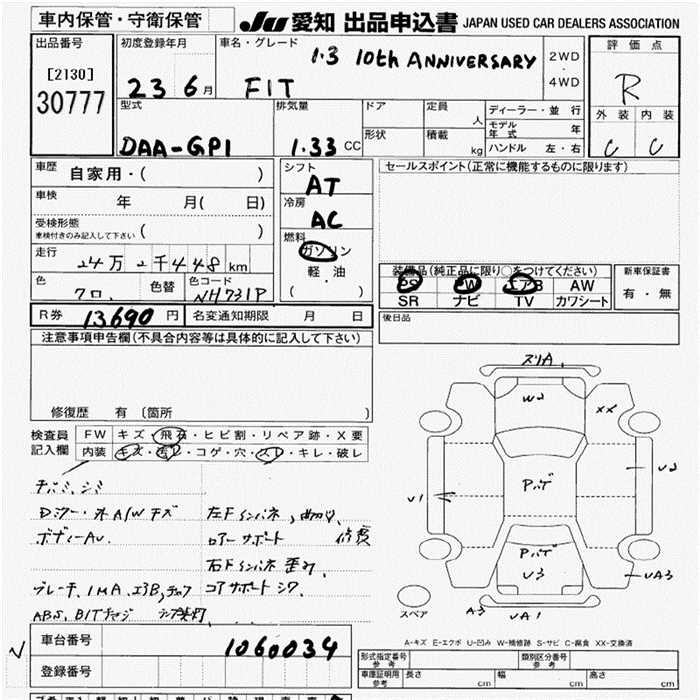 車内保管・守衛保管
JU 愛知 出品申込書 JAPAN USED CAR DEALERS ASSOCIATION
出品番号
[2130]
30777
初度登録年月
23 6月
車名・グレード
1.3 10th ANNIVERSARY
FIT
2WD
・
4WD
評価点
R
外装 内装
C C
型式
DAA-GP1
排気量
1.33 CC
ドア
形状
定員
人
積載
kg
ディーラー・並 行
モデル年式 年
ハンドル 左・右
車歴
自家用・( )
車検
年 月( 日)
受検形態
車検付きのみ記入して下さい ( )
走行
24万2千448km
色
クロ
色替
色コード
NH731P
シフト
AT
冷房
AC
燃料
ガソリン
軽・油
( ・ )
セールスポイント(正常に機能するものに限ります)
装備品(純正品に限り○をつけてください)
PS PW エアB AW
SR ナビ TV カワシート
新車保証書
有・無
R券 13690円
名変通知期限 月 日
後日品
注意事項申告欄(不具合内容等は具体的に記入して下さい)
修復歴 有 〔箇所 〕
検査員
記入欄
FW キズ・飛石・ヒビ割・リペア跡・X要
内装 キズ・汚レ・コゲ・穴・スレ・キレ・破レ
D ミラー・オA/Wキズ
ボディーAU
左Fインパネ、曲凹
ロアーサポート 修復
右Fインパネ歪み
コアサポートシワ
ブレーキ、IMA、エアB、チェック
ABS、BIT チャージ ランプ点灯
ズリA
W2
XX
U1
U2
Pハゲ
Pハゲ
U3
UA3
A3
UA1
スペア
A-キズ E-エクボ U-凹み W-補修跡 S-サビ C-腐食 XX-交換済
車台番号
1060034
登録番号
型式指定番号
参考
類別区分番号
参考
車庫証明用
参考
長さ cm
幅 cm
高さ cm